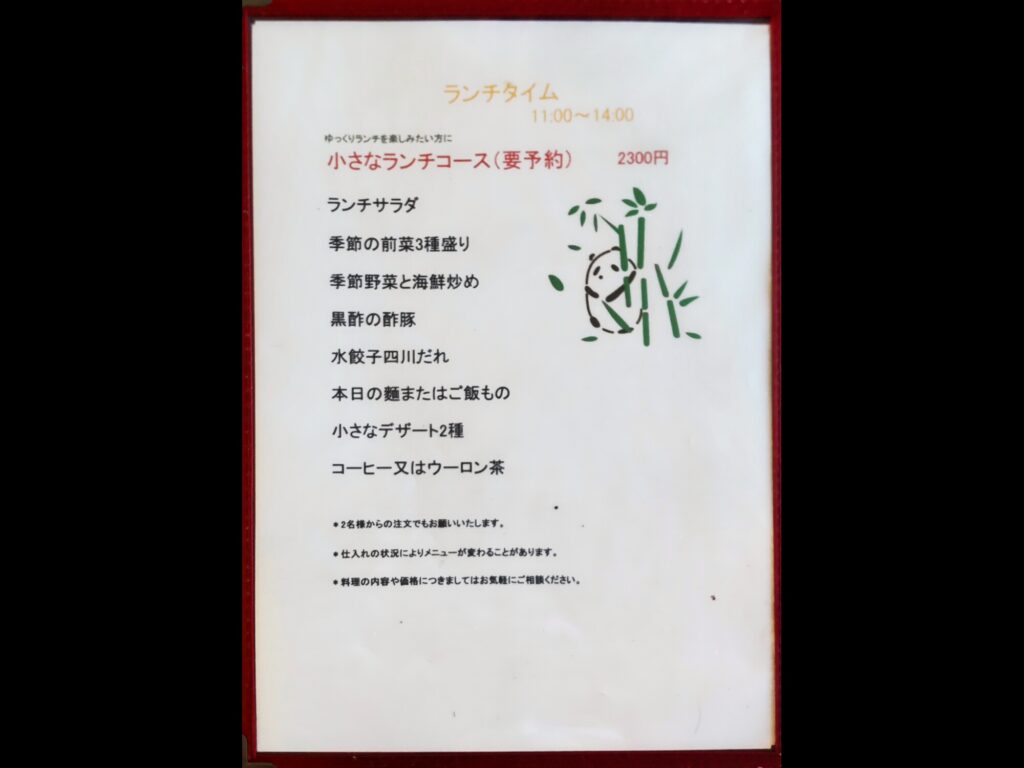 ランチタイム
11:00～14:00
ゆっくりランチを楽しみたい方に
小さなランチコース（要予約） 2300円
ランチサラダ
季節の前菜3種盛り
季節野菜と海鮮炒め
黒酢の酢豚
水餃子四川だれ
本日の麺またはご飯もの
小さなデザート2種
コーヒー又はウーロン茶
＊2名様からの注文でもお願いいたします。
＊仕入れの状況によりメニューが変わることがあります。
＊料理の内容や価格につきましてはお気軽にご相談ください。